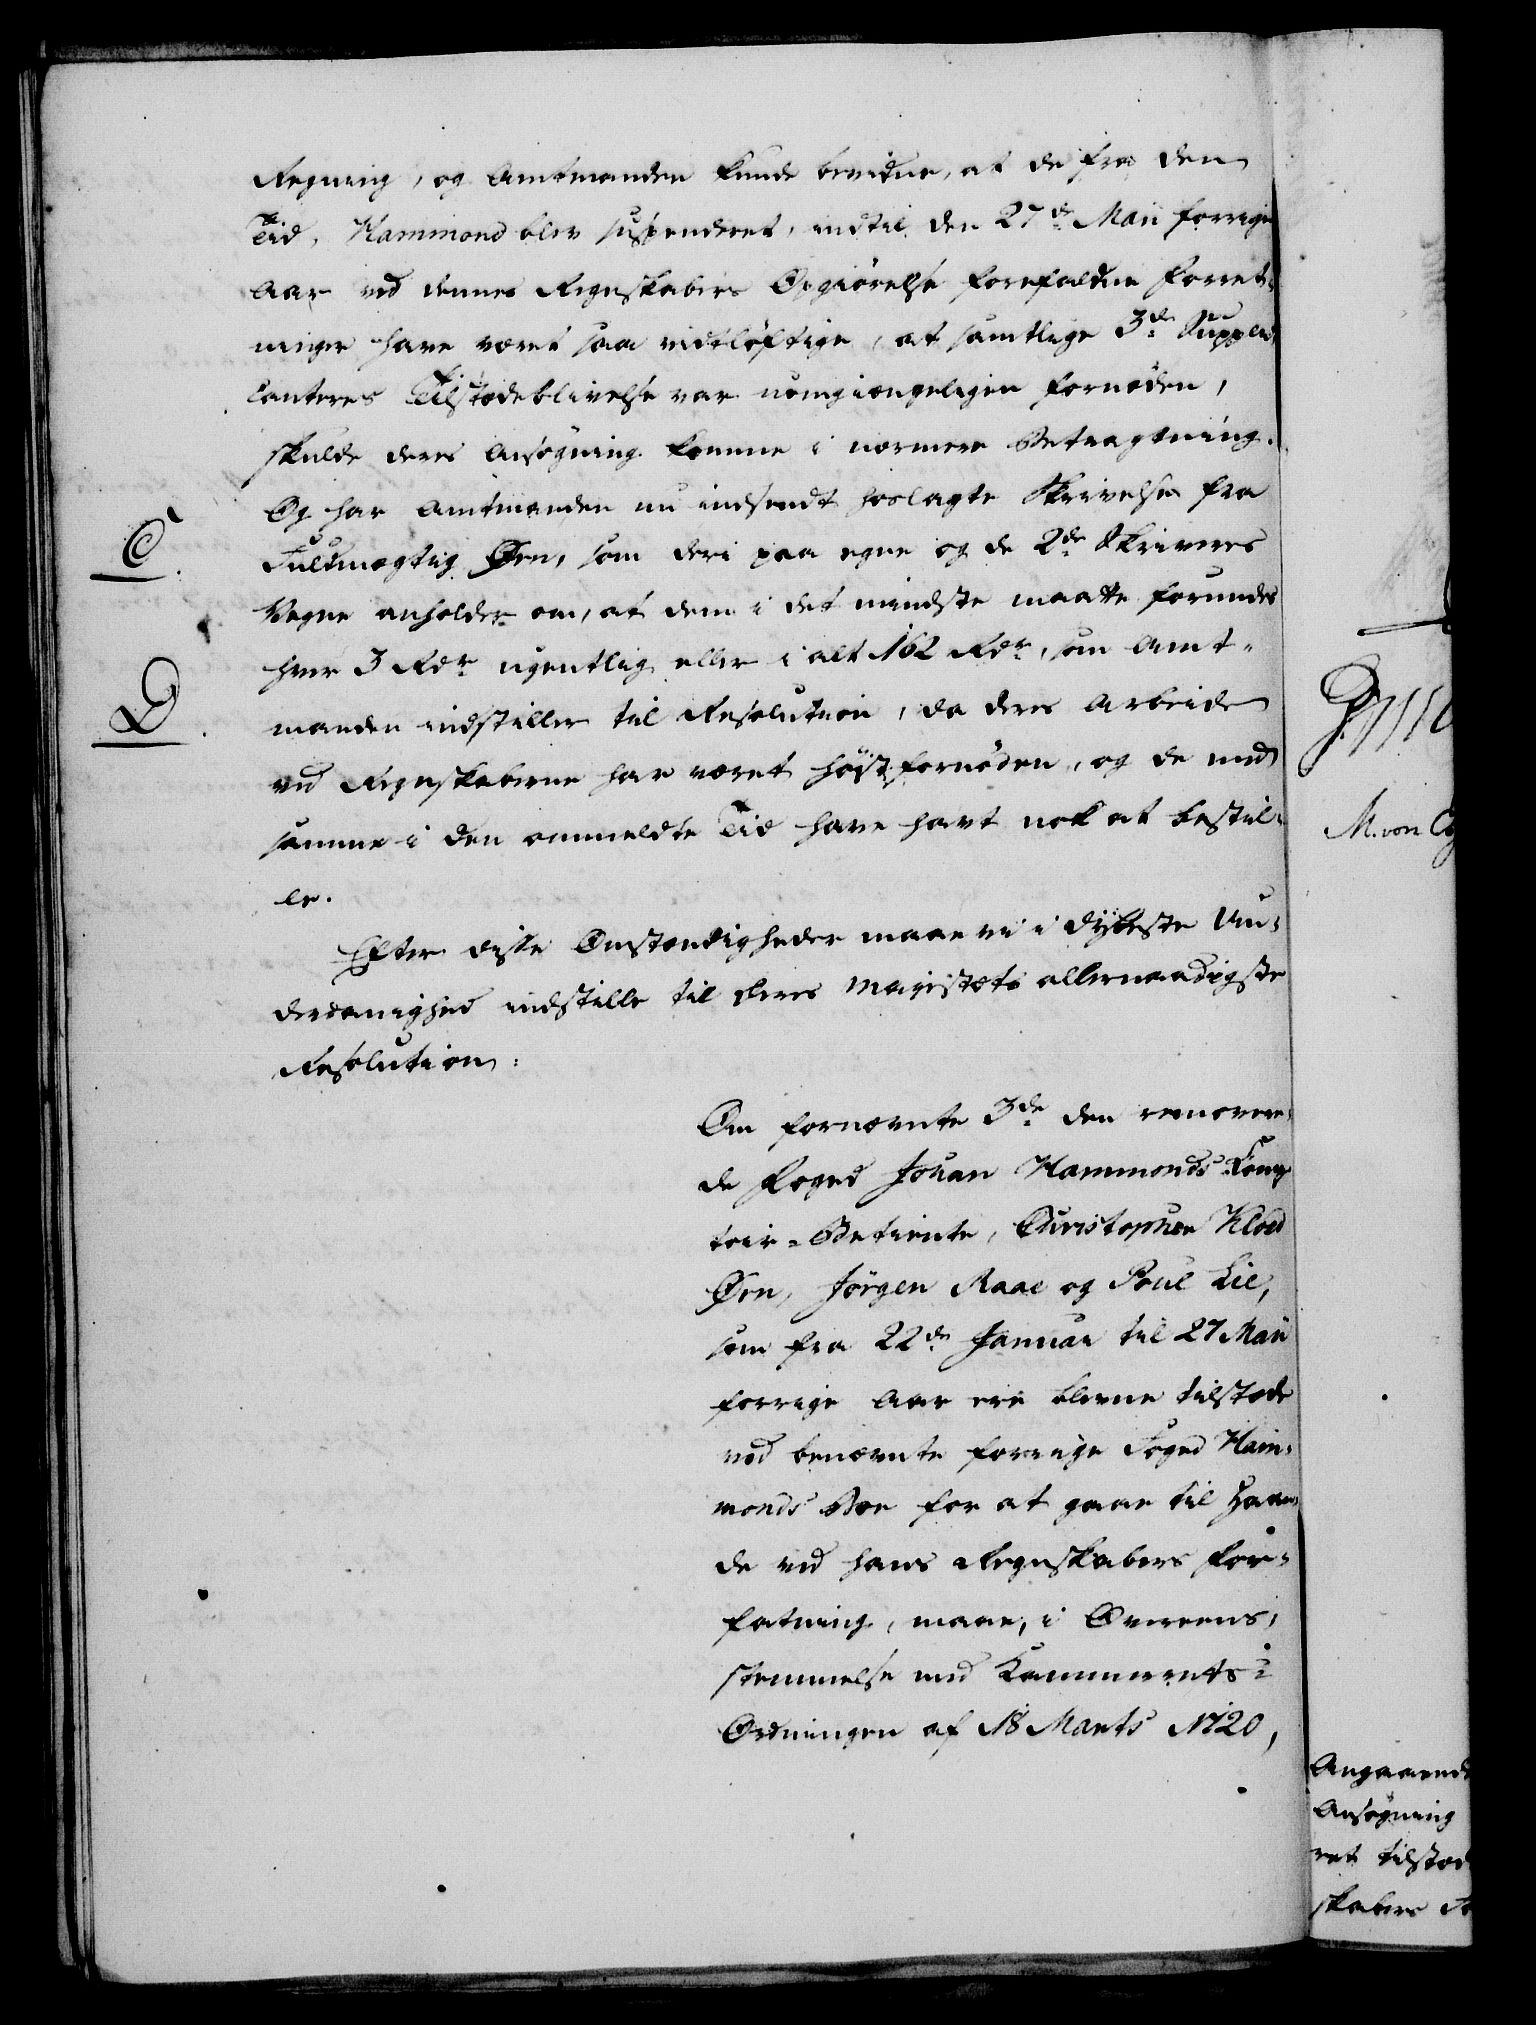 Regning, og Amtmanden kunde bevidne, at de fra den
Tid, Hammond blev suspenderet, indtil den 27de Maii forrige
Aar ved dennes Regnskabers Opgiörelse forefaldne Forret-
ninger have været saa vidtløftige, at samtlige 3de Suppli-
canteres Tilstædeblivelse var uomgiængeligen fornøden,
skulde deres Ansøgning komme i nærmere Betragtning.
Og har Amtmanden nu indsendt hoslagte Skrivelse fra
C.
Fuldmægtig Örn, som deri paa egne og de 2de Skriveres
Vegne anholder om, at dem i det mindste maatte forundes
hver 3 Rdr ugentlig eller i alt 162 Rdr, som Amt-
D.
manden indstiller til Resolution, da deres Arbeide
ved Regnskaberne har været höist fornøden, og de med
samme i den ommeldte Tid have havt nok at bestil-
le.
Efter disse Omstændigheder maae vi i dybeste Un-
derdanighed indstille til Deres Majestæts allernaadigste
Resolution:
Om fornævnte 3de den removere-
de Foged Johan Hammonds Comp-
toir-Betiente, Christopher Kloed
Örn, Jörgen Raae og Poul Lie,
som fra 22de Januar til 27 Maii
forrige Aar ere blevne tilstæde
ved benævnte forrige Foged Ham-
monds Boe for at gaae til Haan-
de ved hans Regnskabers For-
fatning, maae, i Overeens-
stemmelse med Kammerets-
Ordningen af 18 Marts 1720,
M. von
Angaaende
Ansøgning
ret tilstæd
skabers